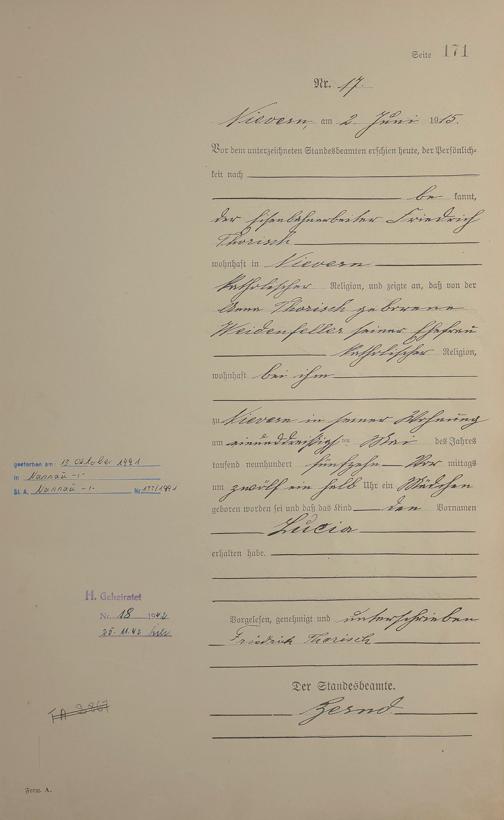 Seite 171
Nr. 17.
Nievern, am 2. Juni 1915.
Vor dem unterzeichneten Standesbeamten erschien heute, der Persönlich-
keit nach
be kannt,
der Eisenbahnarbeiter Friedrich
Thorisch
wohnhaft in Nievern
katholischer Religion, und zeigte an, daß von der
Anna Thorisch geborene
Weidenfeller seiner Ehefrau
katholischer Religion,
wohnhaft bei ihm
zu Nievern in seiner Wohnung
am einunddreißigsten Mai des Jahres
tausend neunhundert fünfzehn Vor mittags
um zwölf ein halb Uhr ein Mädchen
geboren worden sei und daß das Kind den Vornamen
Lucia
erhalten habe.
Vorgelesen, genehmigt und unterschrieben
Friedrich Thorisch
Der Standesbeamte.
gestorben am 13 Oktober 1991
in Nassau
St. A. Nassau Nr.
H. Geheiratet
Nr. 18 1942
25.11.42
TA 2867
Form A.